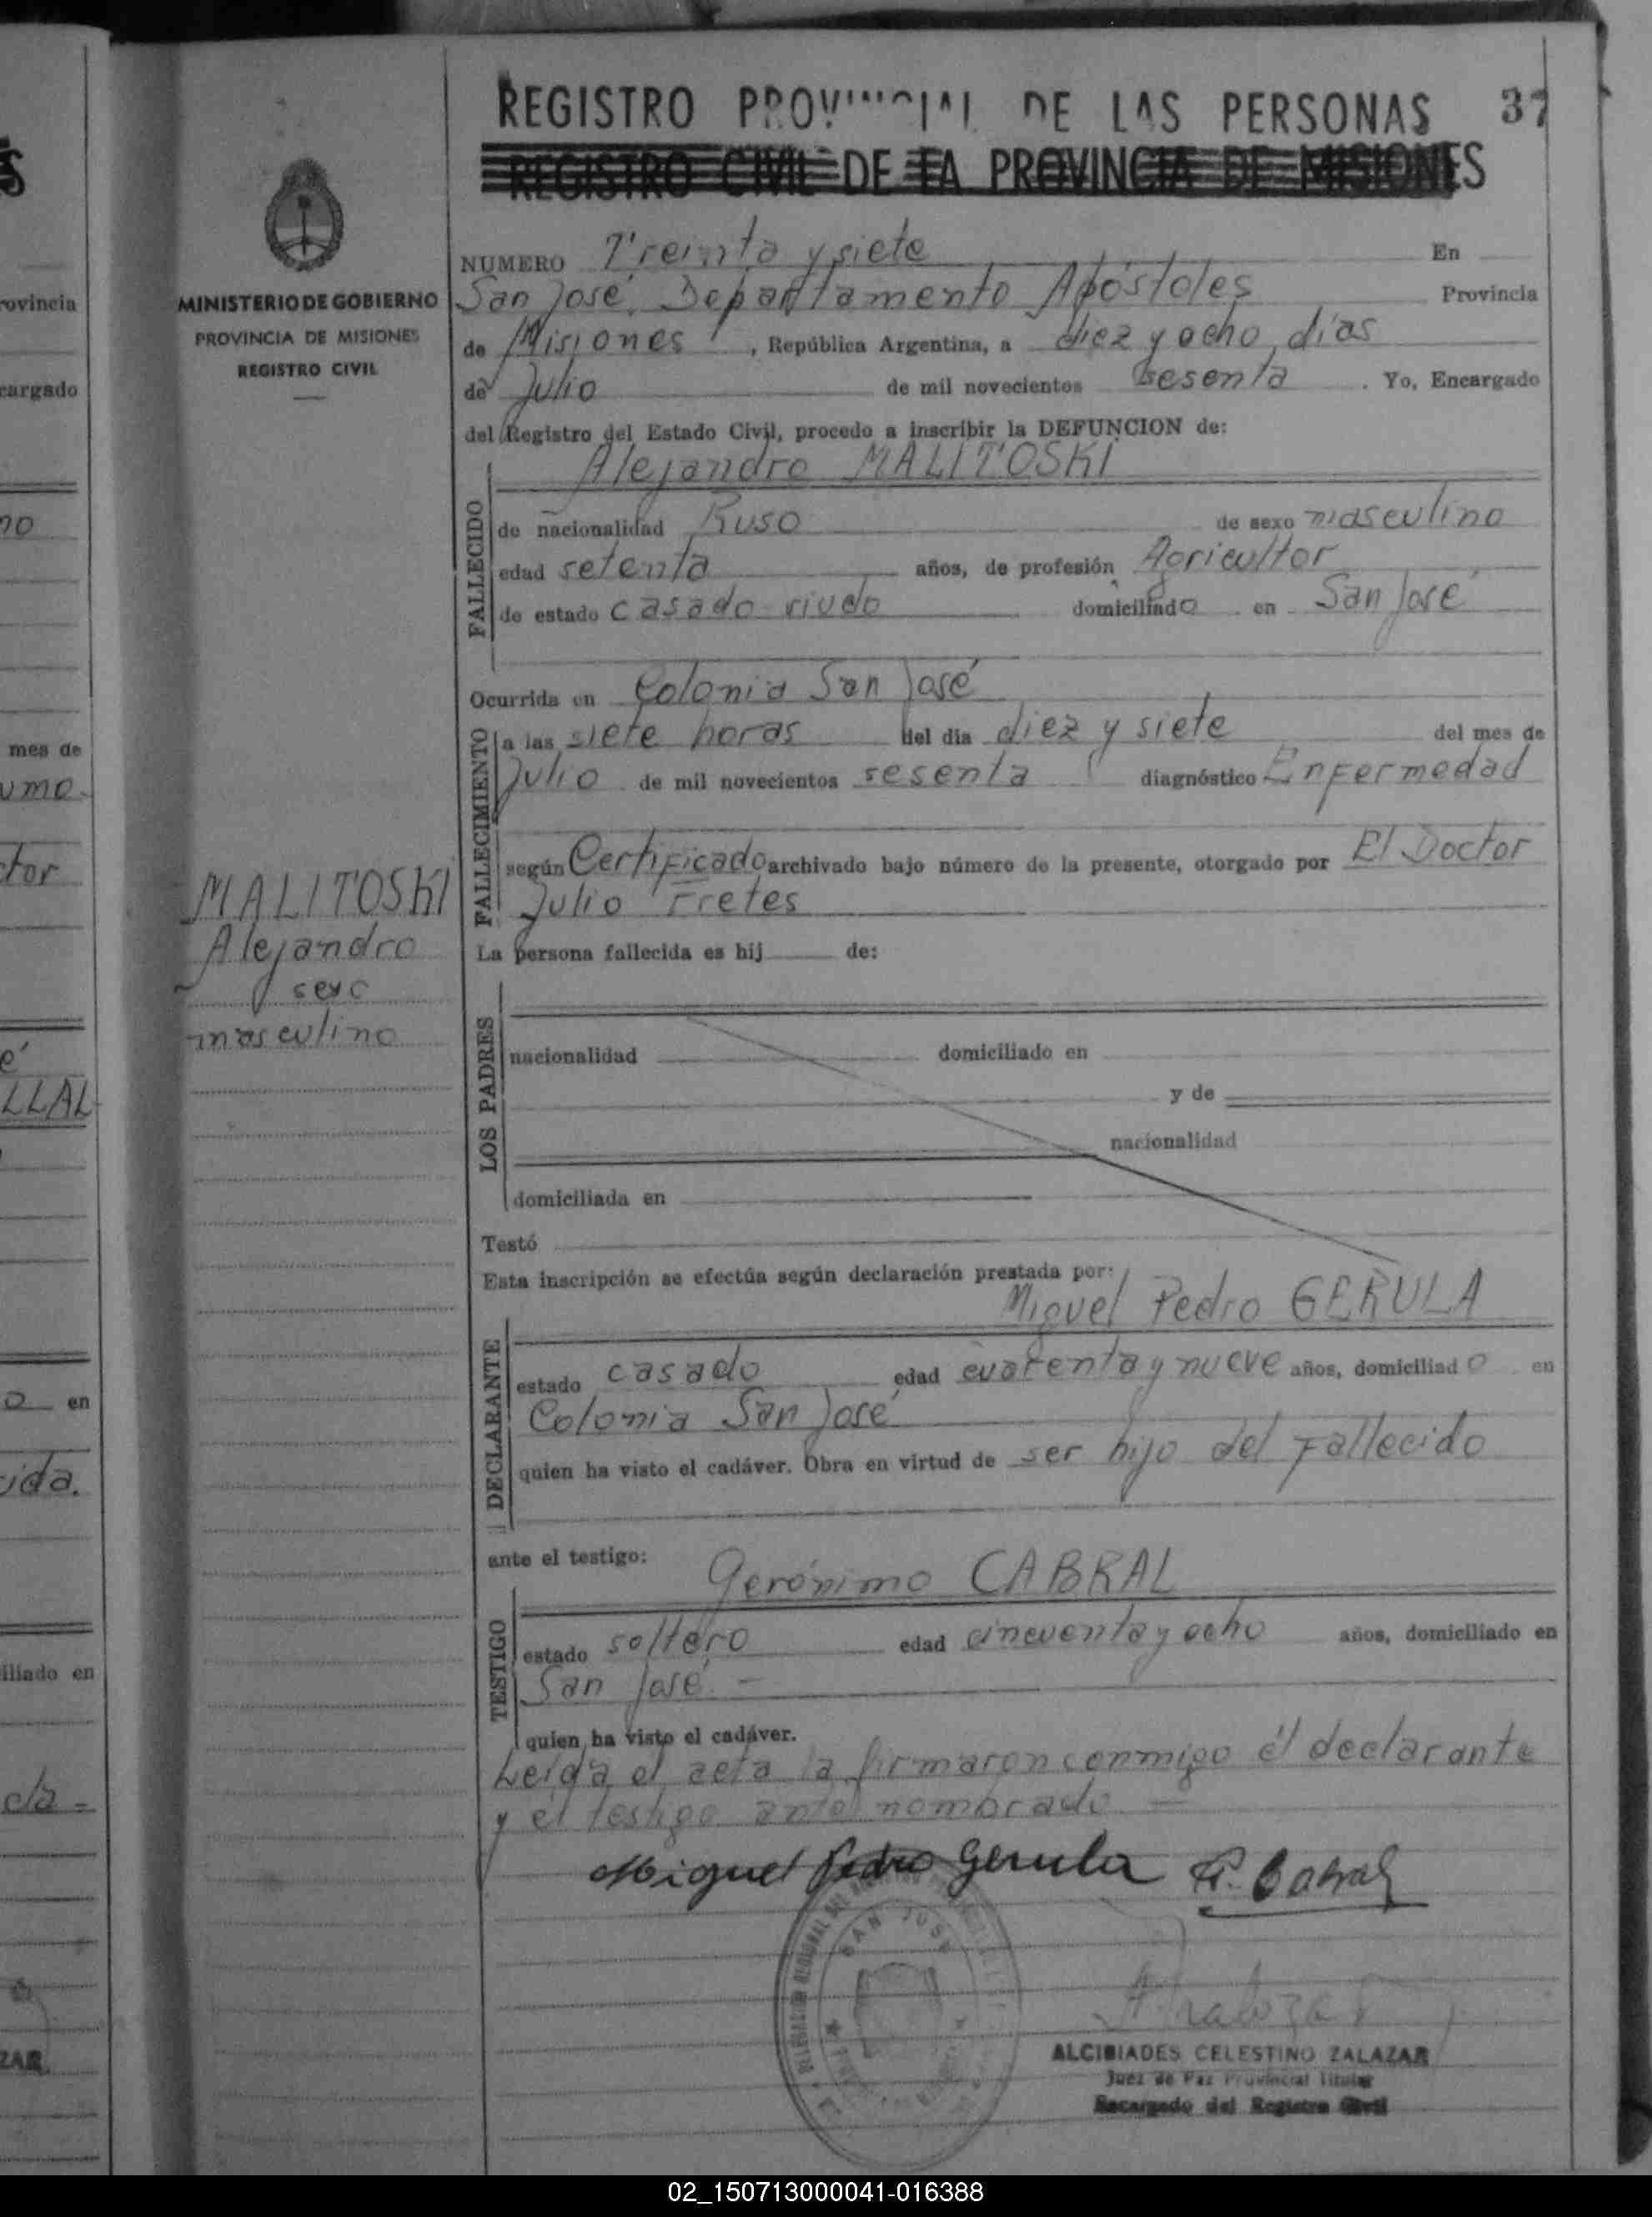 REGISTRO PROVINCIAL DE LAS PERSONAS 37
REGISTRO CIVIL DE LA PROVINCIA DE MISIONES
MINISTERIO DE GOBIERNO
PROVINCIA DE MISIONES
REGISTRO CIVIL
NUMERO Treinta y siete En
San José, Departamento Apóstoles Provincia
de Misiones, República Argentina, a diez y ocho días
de Julio de mil novecientos sesenta. Yo, Encargado
del Registro del Estado Civil, procedo a inscribir la DEFUNCION de:
Alejandro MALITOSKI
FALLECIDO
de nacionalidad Ruso de sexo masculino
edad setenta años, de profesión Agricultor
de estado casado viudo domiciliado en San José
Ocurrida en Colonia San José
FALLECIMIENTO
a las siete horas del día diez y siete del mes de
Julio de mil novecientos sesenta diagnóstico Enfermedad
según Certificado archivado bajo número de la presente, otorgado por El Doctor
Julio Fretes
MALITOSKI
Alejandro
sexo
masculino
La persona fallecida es hij de:
LOS PADRES
nacionalidad domiciliado en
y de
nacionalidad
domiciliada en
Testó
Esta inscripción se efectúa según declaración prestada por:
Miguel Pedro GERULA
DECLARANTE
estado casado edad cuarenta y nueve años, domiciliado en
Colonia San José
quien ha visto el cadáver. Obra en virtud de ser hijo del fallecido
ante el testigo:
Gerónimo CABRAL
TESTIGO
estado soltero edad cincuenta y ocho años, domiciliado en
San José. -
quien ha visto el cadáver.
Leida el acta la firmaron conmigo el declarante
y el testigo ante nombrado —
Miguel Pedro Gerula G. Cabral
SAN JOSE
ALCIBIADES CELESTINO ZALAZAR
Juez de Paz Provincial Titular
Encargado del Registro Civil
rovincia
cargado
no
mes de
umo.
ctor
e'
LLAL
o en
ida.
iliado en
cta -
ZAR
02_150713000041-016388